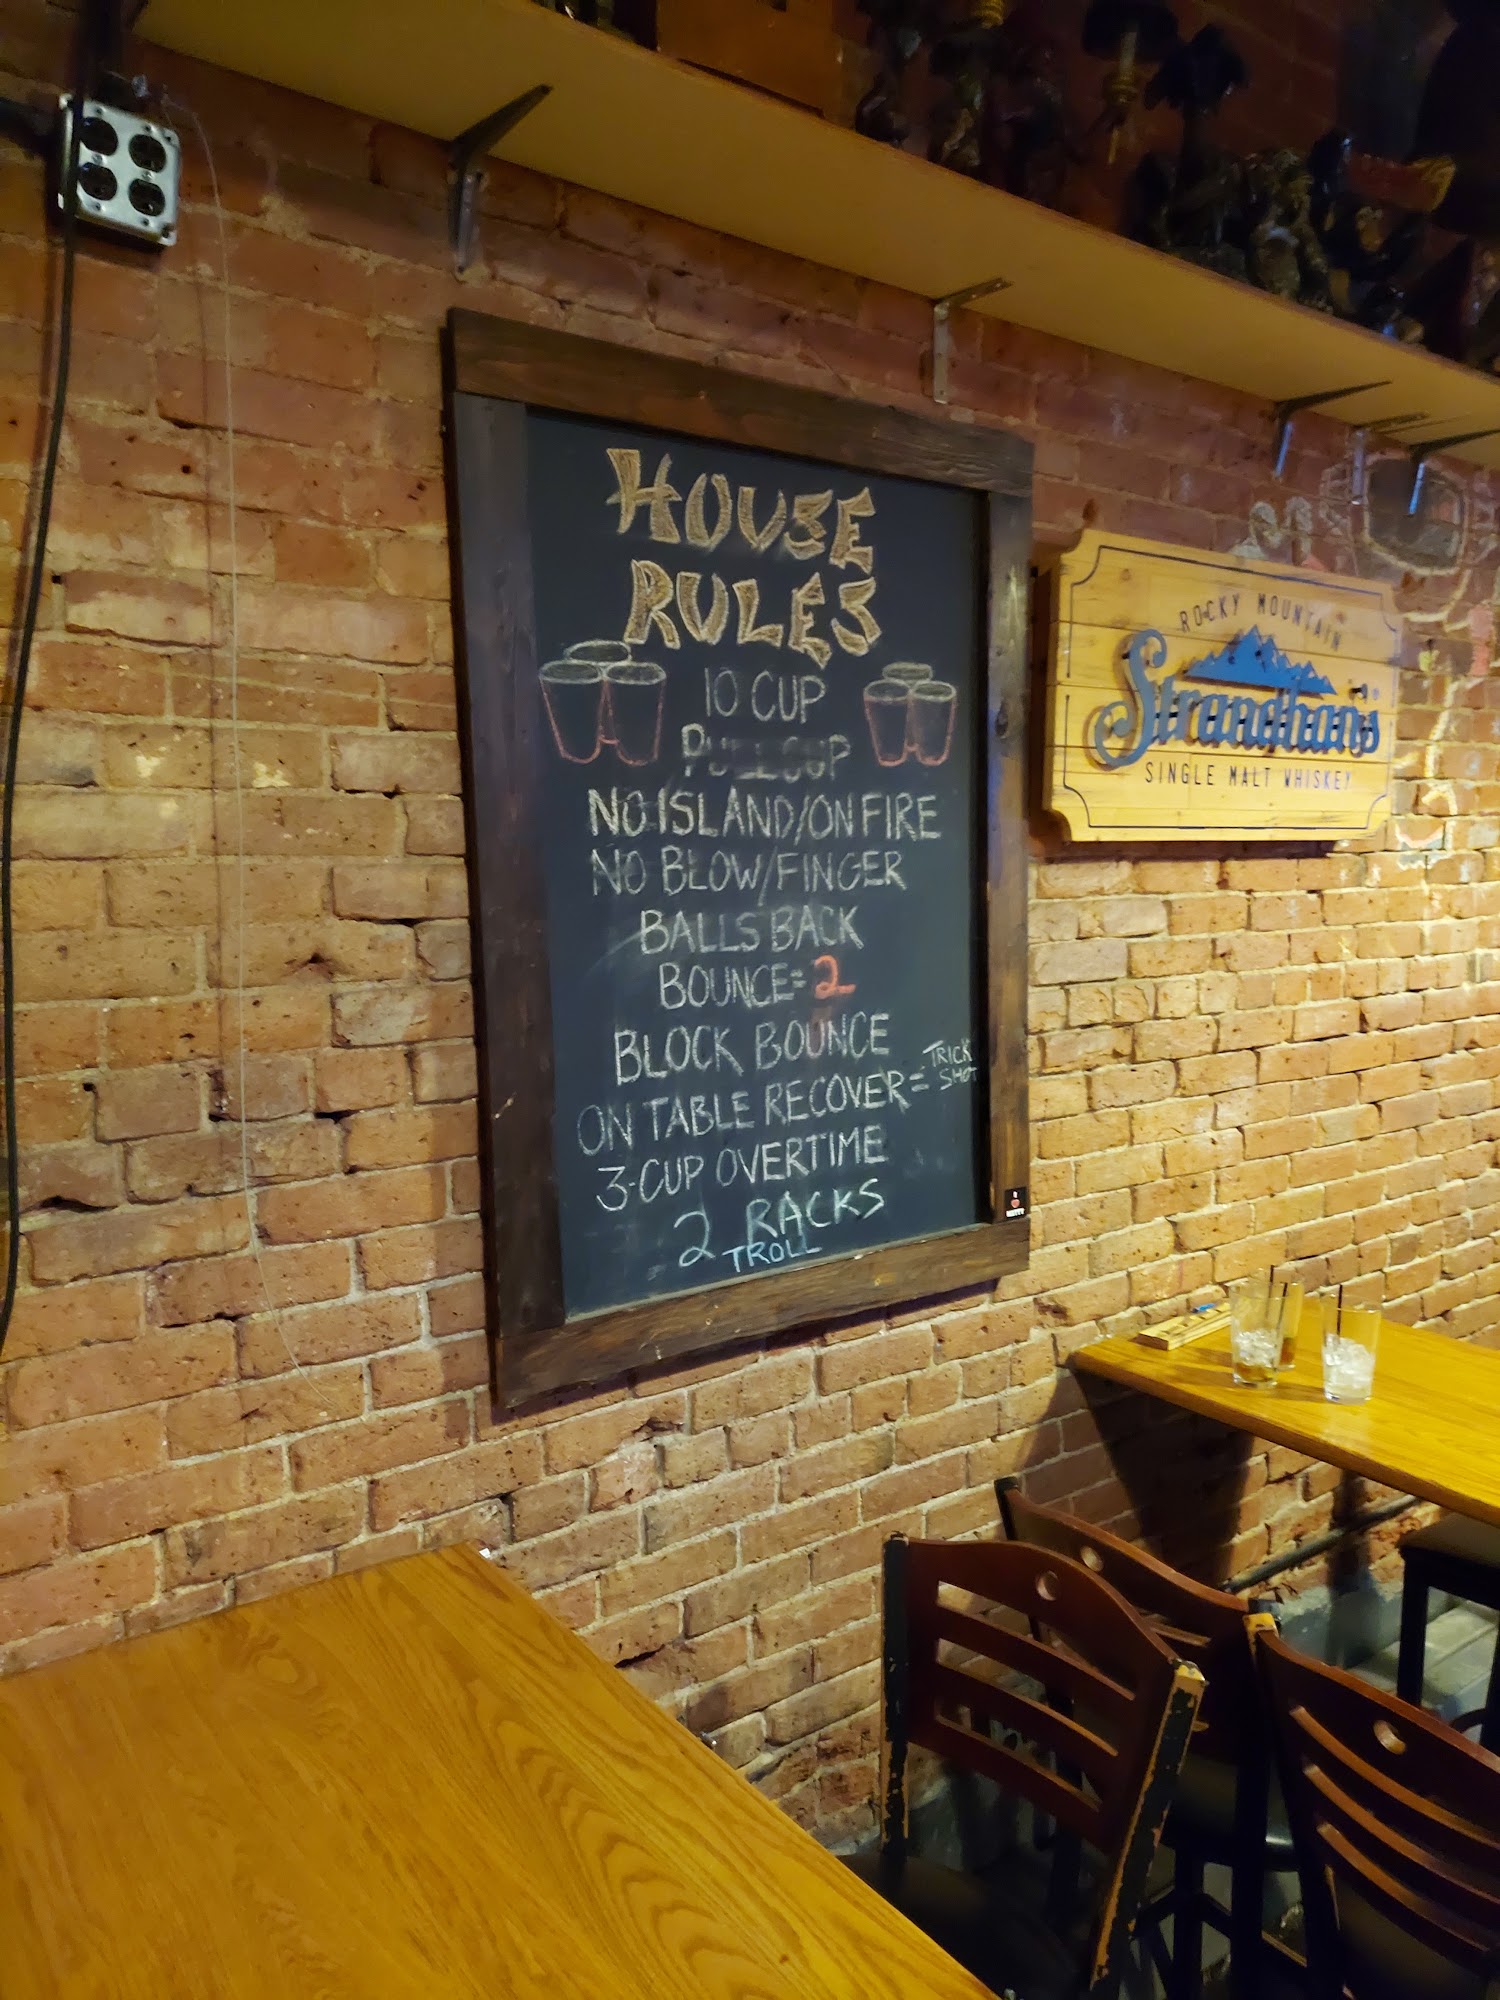 HOUSE
RULES
10 CUP
PULL CUP
NO ISLAND/ON FIRE
NO BLOW/FINGER
BALLS BACK
BOUNCE=2
BLOCK BOUNCE
ON TABLE RECOVER = TRICK SHOT
3-CUP OVERTIME
2 RACKS
TROLL
ROCKY MOUNTAIN
Stranahan's
SINGLE MALT WHISKEY